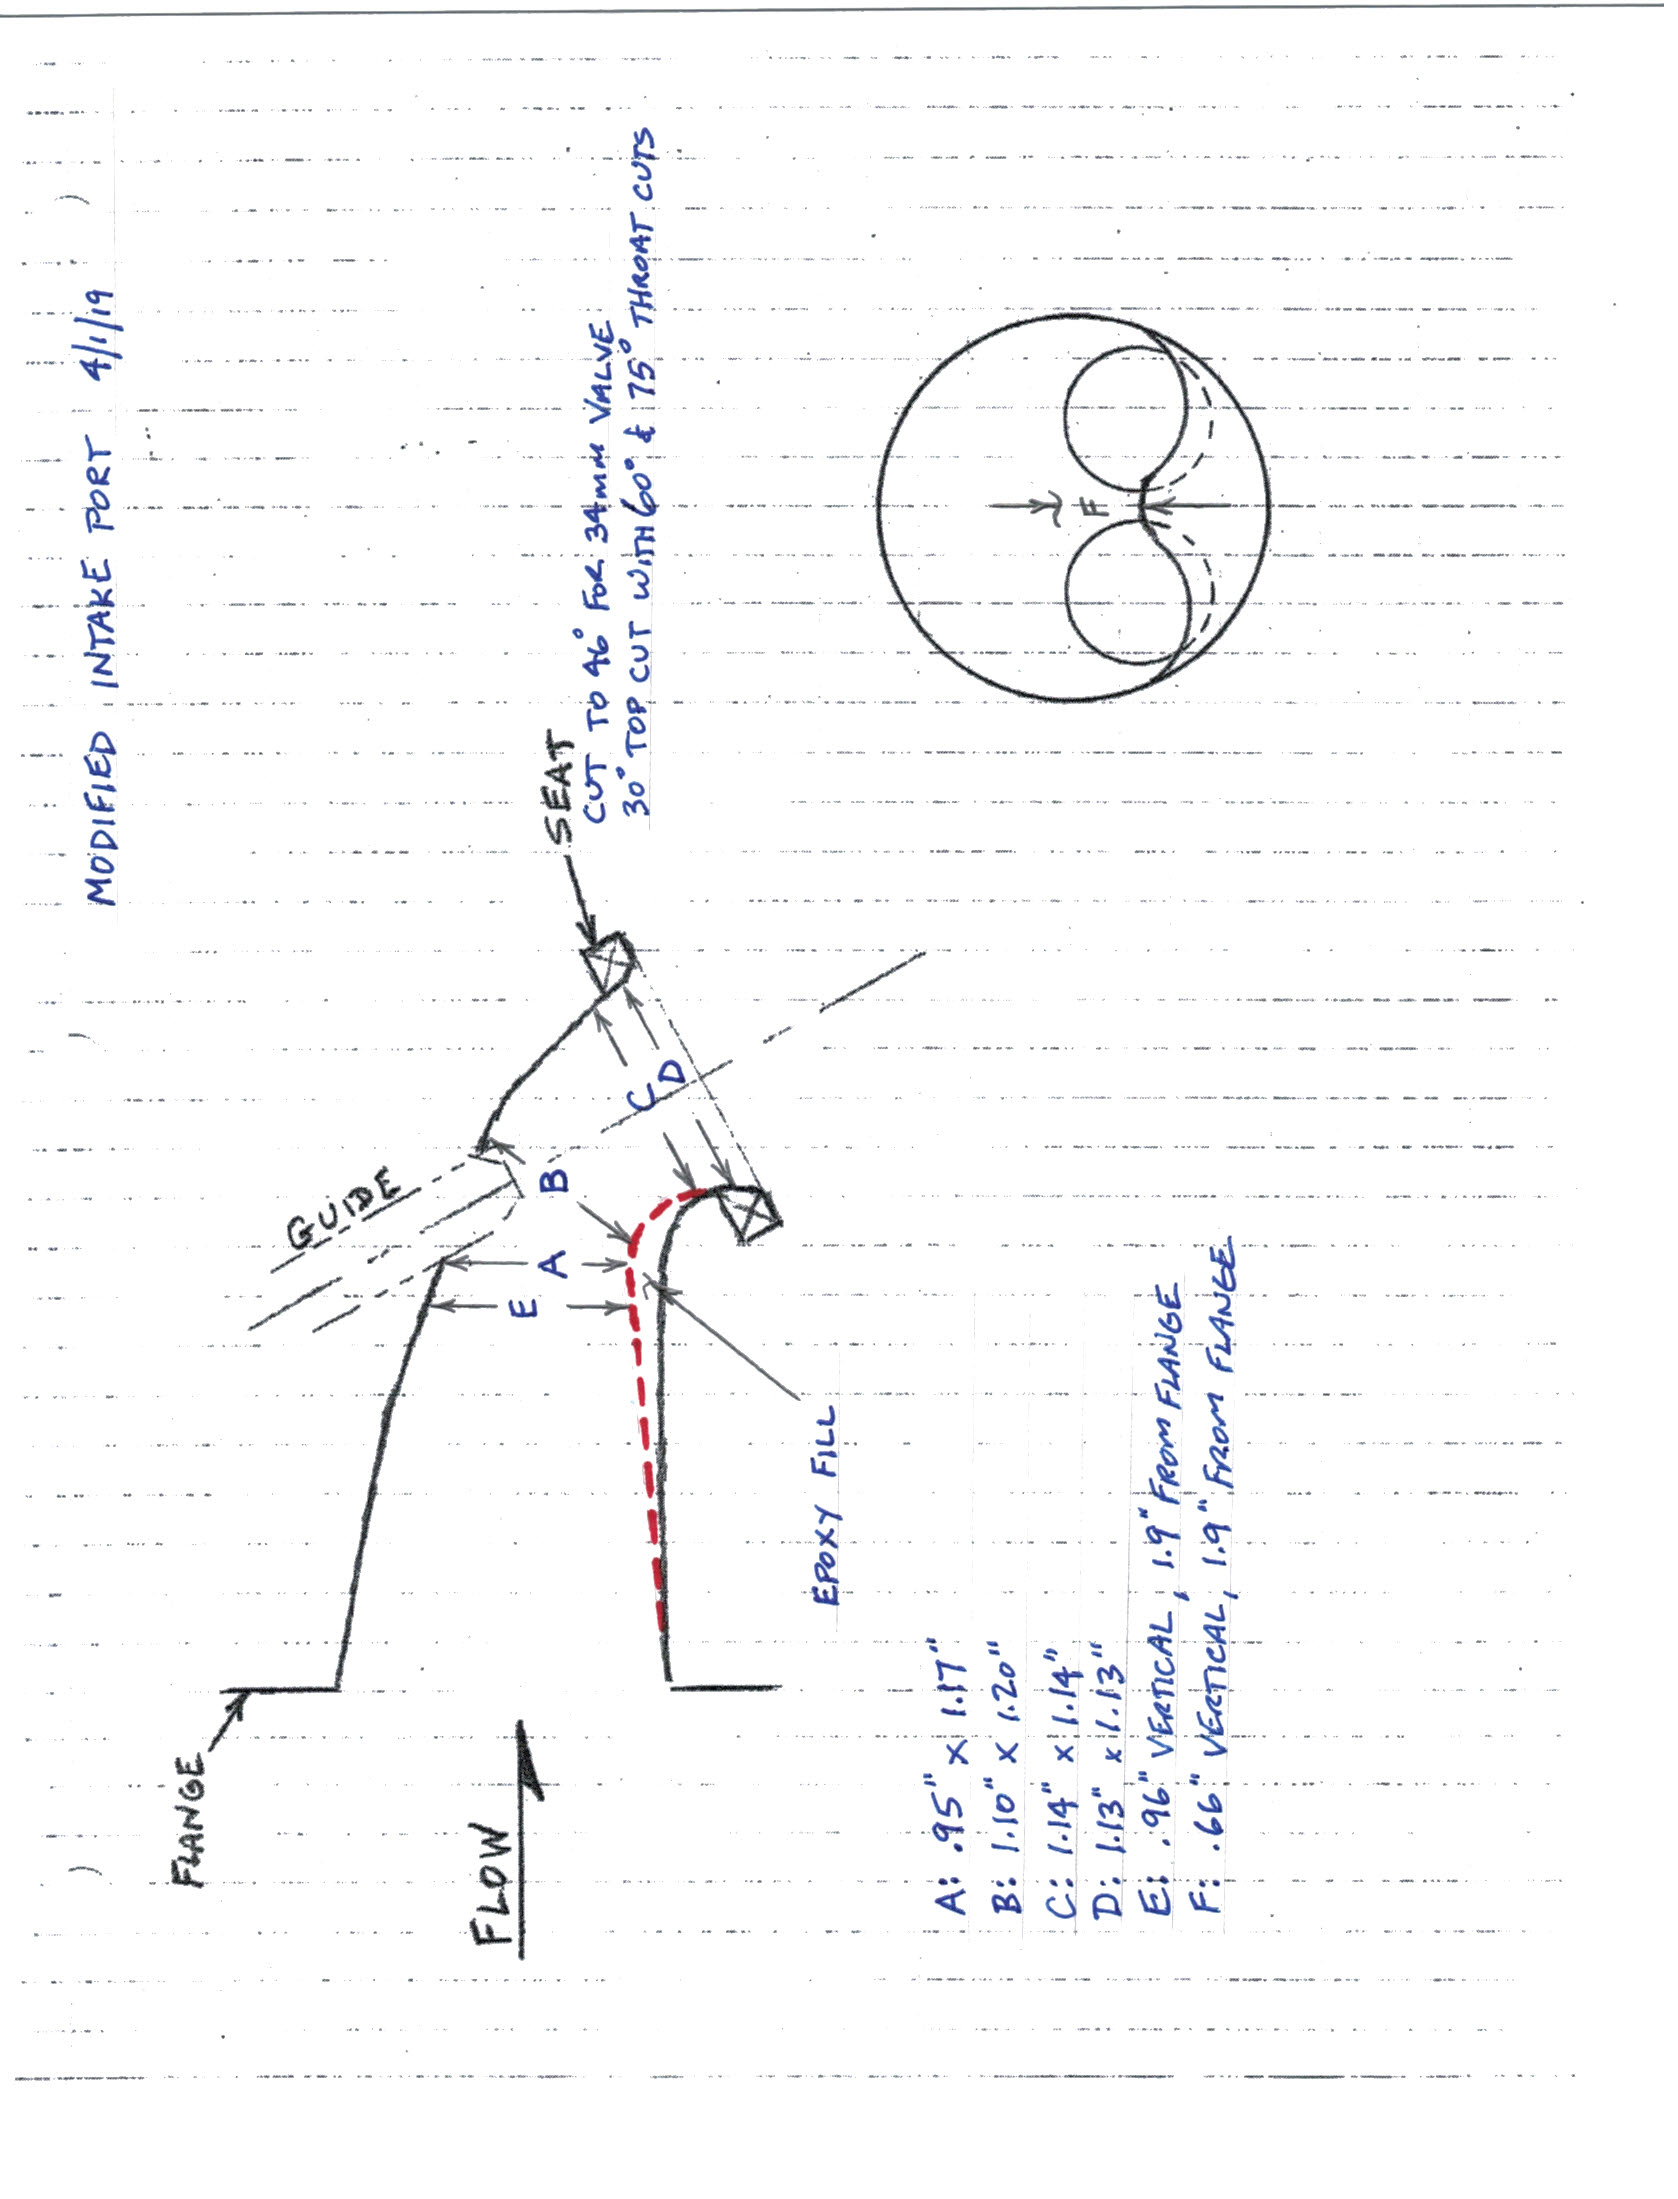 MODIFIED INTAKE PORT 4/1/19
GUIDE
SEAT
CUT TO 46° FOR 34MM VALVE
30° TOP CUT WITH 60° & 75° THROAT CUTS
FLANGE
FLOW
E
A
B
C
D
EPOXY FILL
F
A: .95" x 1.17"
B: 1.10" x 1.20"
C: 1.14" x 1.14"
D: 1.13" x 1.13"
E: .96" VERTICAL, 1.9" FROM FLANGE
F: .66" VERTICAL, 1.9" FROM FLANGE